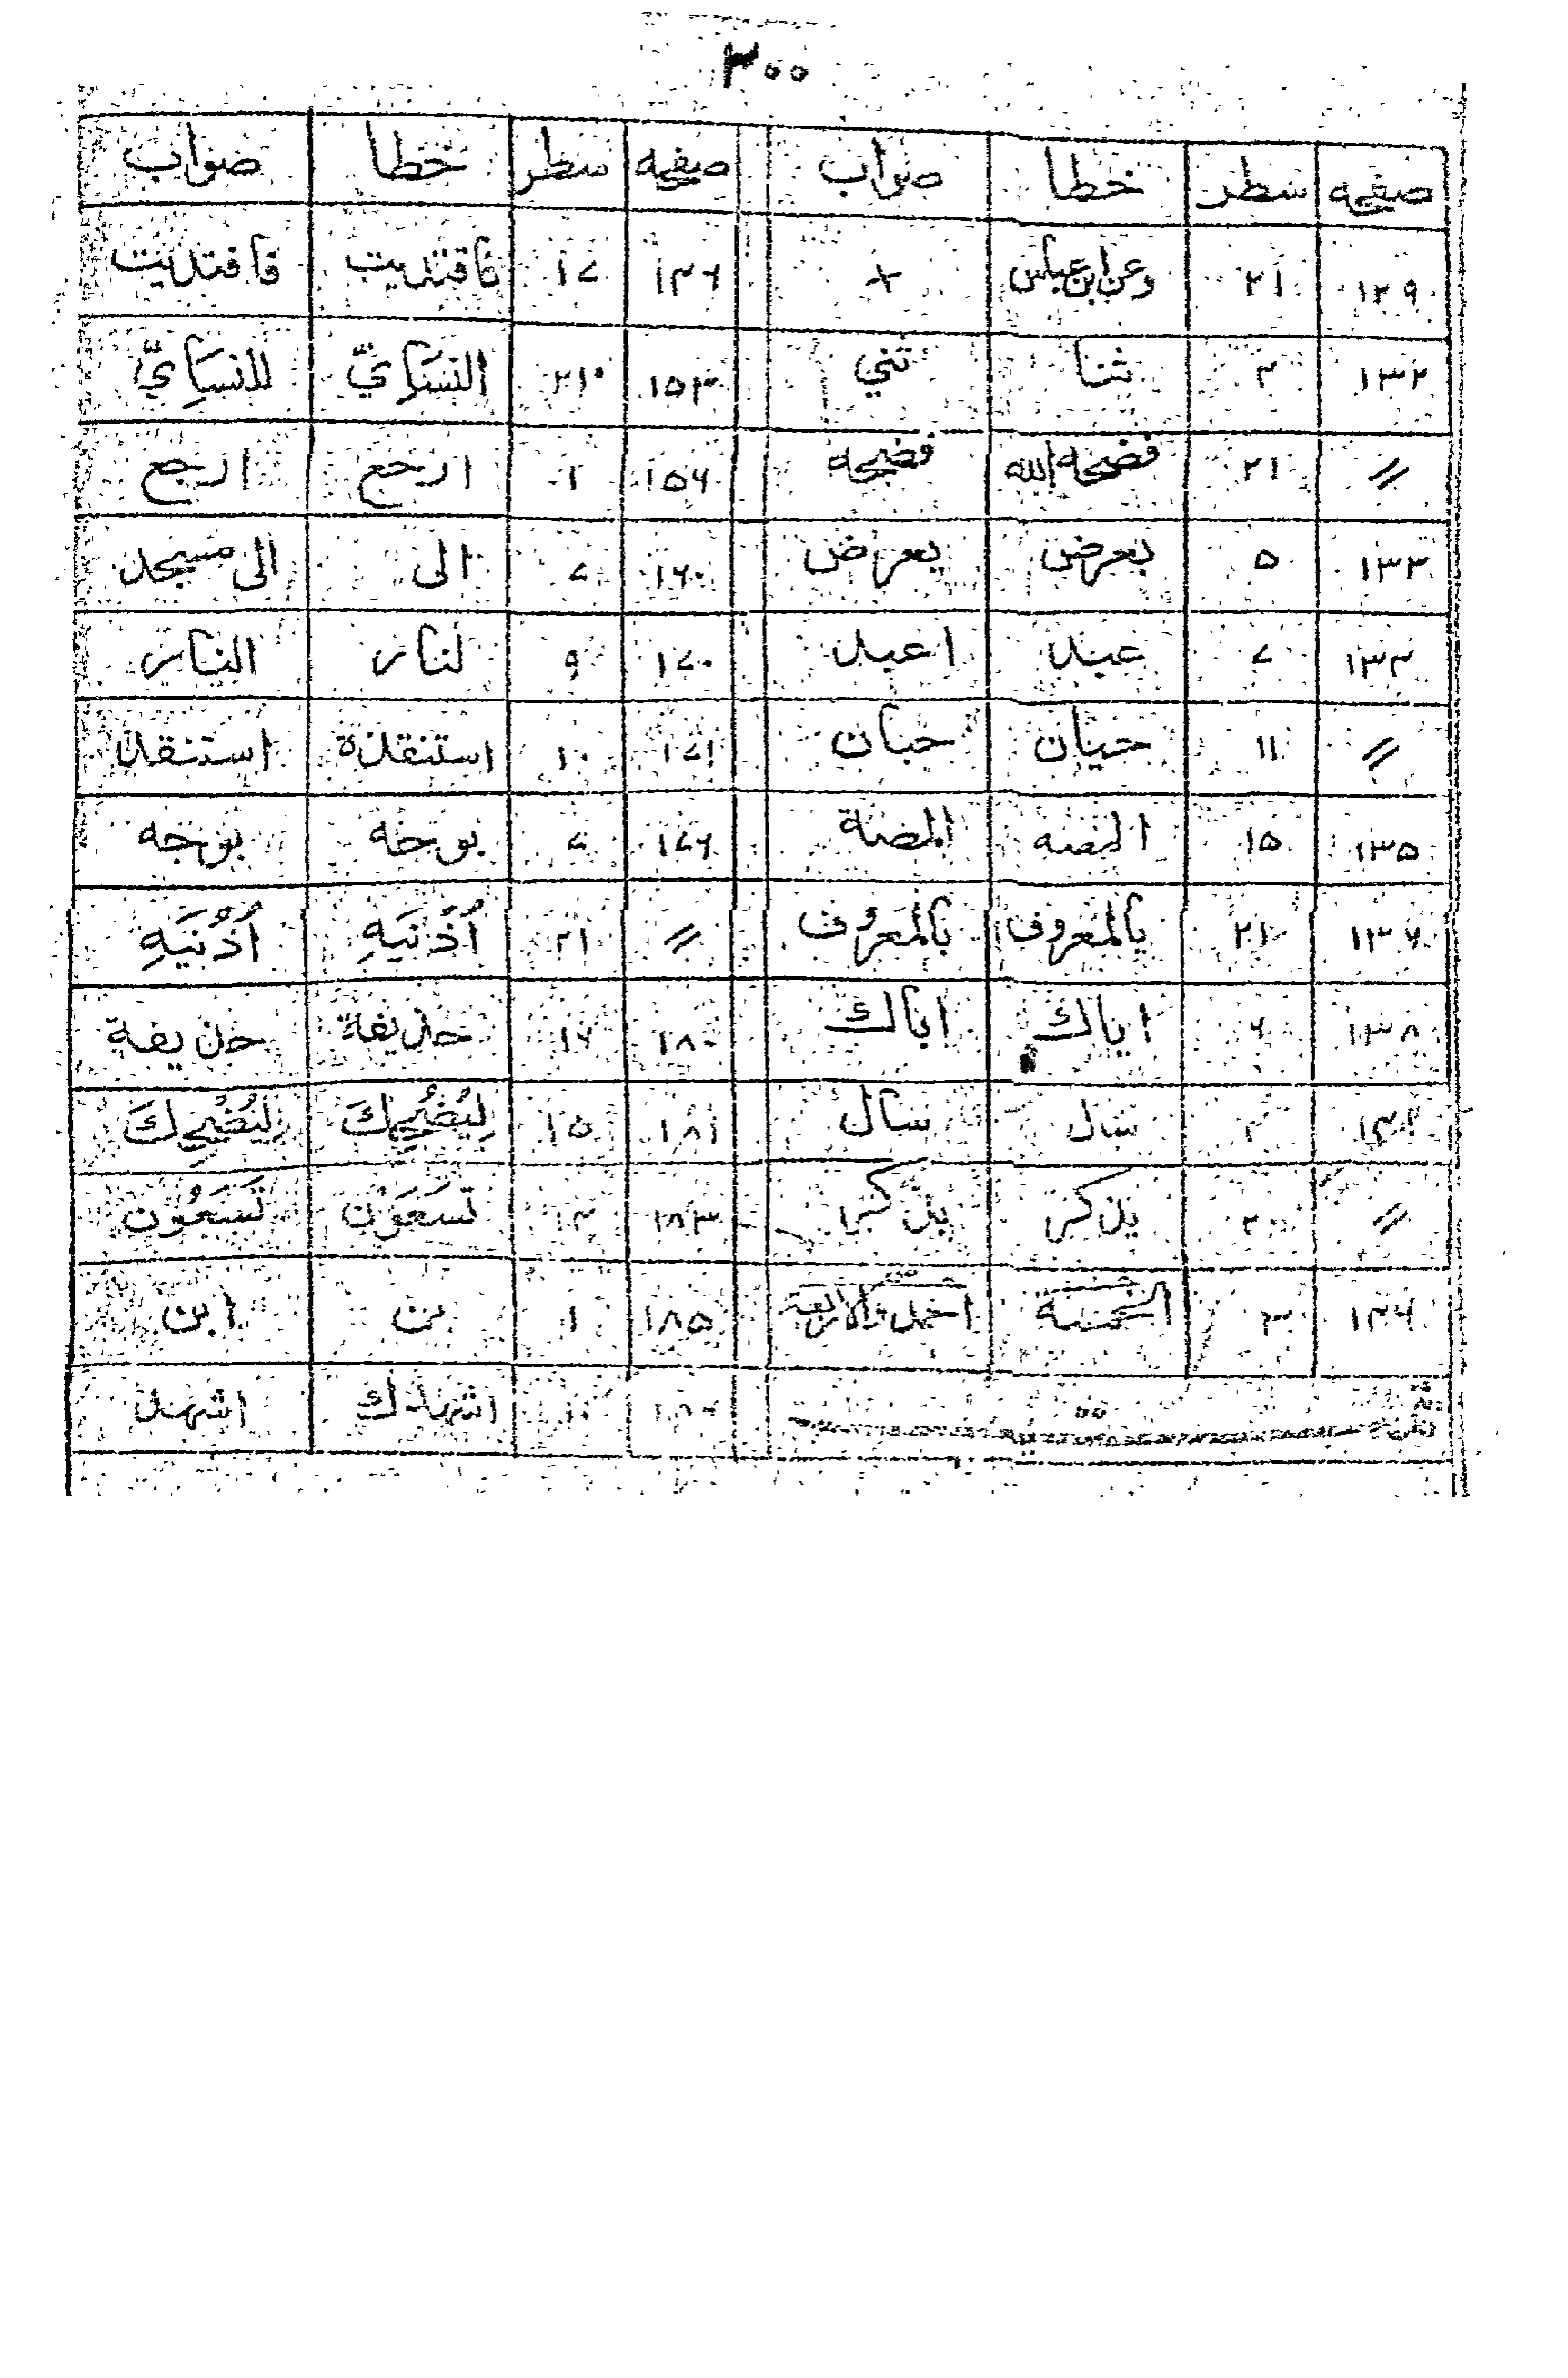 ٣٠٠
صفحه سطر خطا صواب صفحه سطر خطا صواب
١٢٩ ٢١ وعن ابن عباس × ١٤٦ ١٧ فاقتديت فافتديت
١٣٢ ٢ ثنا ثني ١٥٣ ٢١ النسَاِئيّ للنسَاِئيّ
〃 ٢١ فضحه الله فضحه ١٥٦ ١ ارحع ارجع
١٣٣ ٥ بعرض يعرض ١٦٠ ٧ الى الى مسجد
١٣٤ ٧ عبد اعبد ١٧٠ ٩ لنار النار
〃 ١١ حيان حبان ١٧١ ١٠ استنقذة استنقذ
١٣٥ ١٥ المضه المضة ١٧٦ ٧ بوحه بوجه
١٣٦ ٢١ يالمعروف بالمعروف 〃 ٢١ أُذَُنَيَهِ أُذُنَيَهِ
١٣٨ ٦ اياك اباك ١٨٠ ١٦ حذيفة حذيفة
٢ سال سال ١٨١ ١٥ لِيُضْحِكَ لِيُضْحِكَ
〃 ٢٠ يذكر يذكر ١٨٣ ١٢ تسَعَوْن تَسَعُون
١٤٦ ٣ الخمسة احمد والاربعة ١٨٥ ١ بن ابن
١٠ اشهدك اشهد